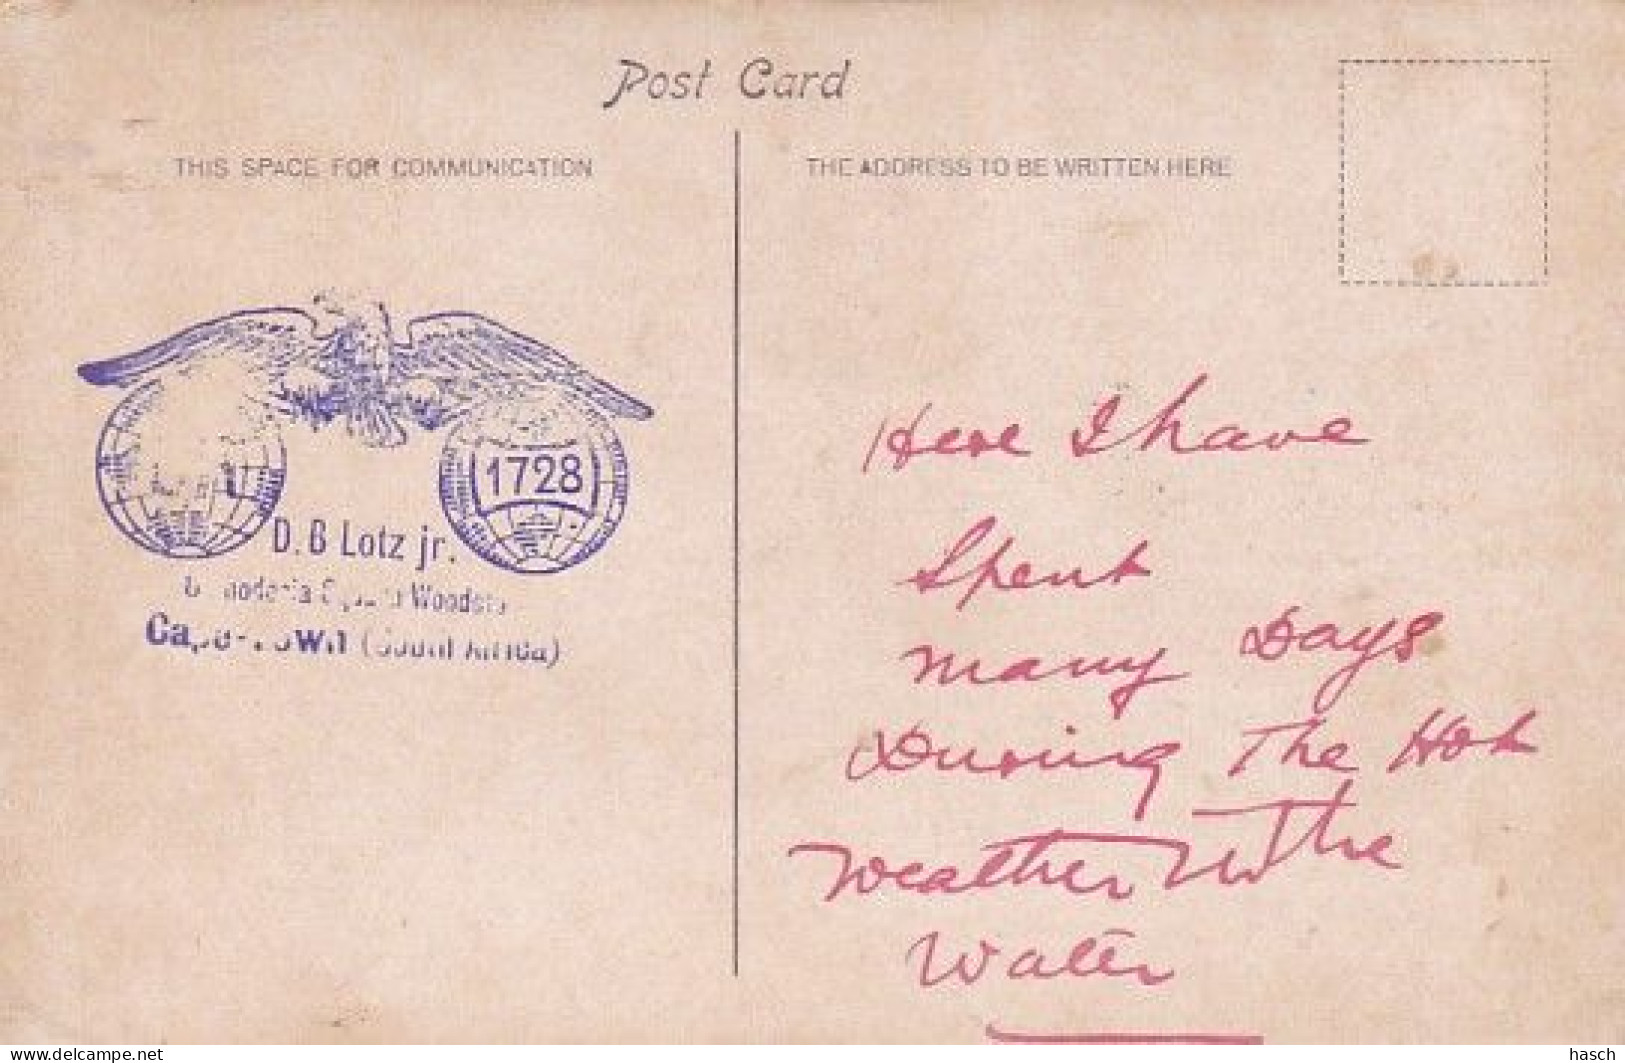 Post Card
THIS SPACE FOR COMMUNICATION
THE ADDRESS TO BE WRITTEN HERE
1728
D. B Lotz jr.
Cape-Town (South Africa)
Here I have
Spent
many Days
During The Hot
Weather In The
Water
delcampe.net
hasch